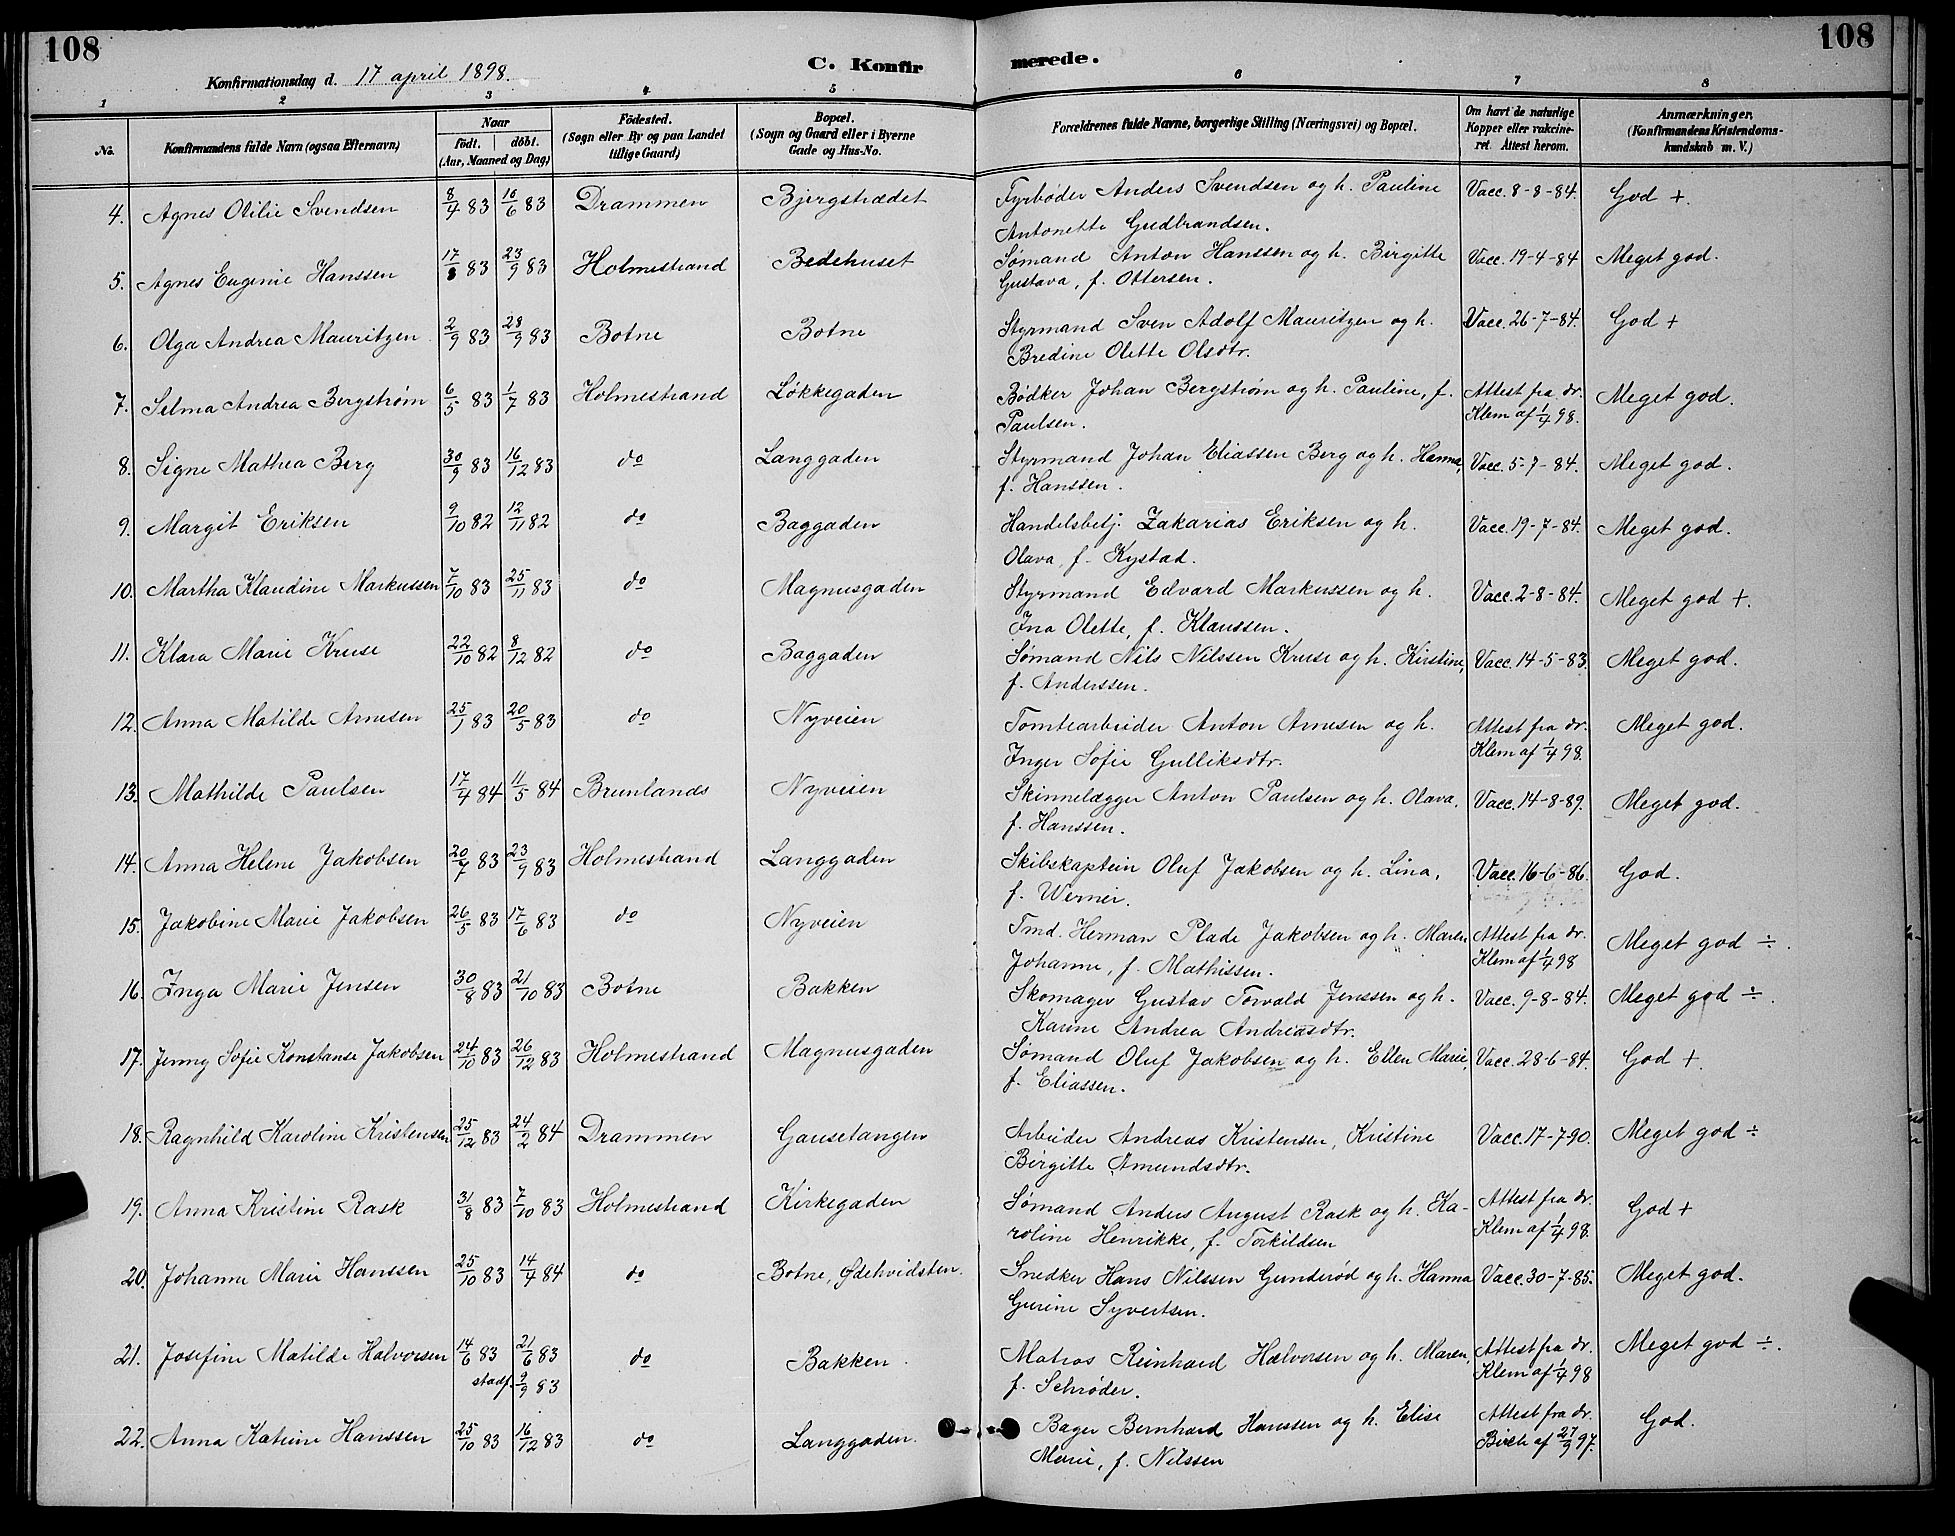 108
108
C. Konfirmerede.
Konfirmationsdag d. 17 april 1898.
1 2 3 4 5 6 7 8
No. Konfirmandens fulde Navn (ogsaa Efternavn) Naar født. døbt. (Aar, Maaned og Dag) Fødested. (Sogn eller By og paa Landet tillige Gaard) Bopæl. (Sogn og Gaard eller i Byerne Gade og Hus-No. Forældrenes fulde Navne, borgerlige Stilling (Næringsvei) og Bopæl. Om havt de naturlige Kopper eller vakcineret. Attest herom. Anmærkninger. (Konfirmandens Kristendomskundskab m. V.)
4. Agnes Otilie Svendsen 8/4 83 10/6 83 Drammen Bjergstrædet Fyrbøder Anders Svendsen og h. Pauline Vacc. 8-8-84. God +.
Antonette Gudbrandsen.
5. Agnes Eugenie Hanssen 17/8 83 23/9 83 Holmestrand Bedehuset Sømand Anton Hanssen og h. Birgitte Vacc. 19-4-84 Meget god.
Gustava, f. Ottersen.
6. Olga Andrea Mauritzen 2/9 83 28/9 83 Botne Botne Styrmand Sven Adolf Mauritzen og h. Vacc. 26-7-84. God +
Bredine Olette Olsdtr.
7. Selma Andrea Bergstrøm 6/5 83 1/7 83 Holmestrand Løkkegaden Bødker Johan Bergstrøm og h. Pauline, f. Attest fra dr. Meget god.
Paulsen. Klem af 1/4 98.
8. Signe Mathea Berg 30/9 83 16/12 83 do Langgaden Styrmand Johan Eliassen Berg og h. Hanna, Vacc. 5-7-84. Meget god.
f. Hanssen.
9. Margit Eriksen 9/10 82 12/11 82 do Baggaden Handelsbetj. Zakarias Eriksen og h. Vacc. 19-7-84. Meget god.
Olava, f. Kystad.
10. Martha Klaudine Markussen 7/10 83 25/11 83 do Magnusgaden Styrmand Edvard Markussen og h. Vacc. 2-8-84. Meget god +.
Ina Olette, f. Klaussen.
11. Klara Marie Kruse 22/10 82 8/12 82 do Baggaden Sømand Nils Nilssen Kruse og h. Kirstine, Vacc. 14-5-83. Meget god.
f. Anderssen.
12. Anna Matilde Arnesen 25/1 83 20/5 83 do Nyveien Tomtearbeider Anton Arnesen og h. Attest fra dr. Meget god.
Inger Sofie Gulliksdtr. Klem af 1/4 98.
13. Mathilde Paulsen 17/4 84 11/5 84 Brunlands Nyveien Skinnelægger Anton Paulsen og h. Olava, Vacc. 14-8-89. Meget god.
f. Hanssen.
14. Anna Helene Jakobsen 20/7 83 23/9 83 Holmestrand Langgaden Skibskaptein Oluf Jakobsen og h. Lina, Vacc. 16-6-86. God.
f. Werner.
15. Jakobine Marie Jakobsen 26/5 83 17/6 83 do Nyveien Tmd. Herman Plade Jakobsen og h. Maren Attest fra dr. Meget god ÷.
Johanne, f. Mathissen. Klem af 1/4 98
16. Inga Marie Jensen 30/8 83 21/10 83 Botne Bakken Skomager Gustav Torvald Jenssen og h. Vacc. 9-8-84. Meget god ÷.
Karine Andrea Andreasdtr.
17. Jenny Sofie Konstanse Jakobsen 24/10 83 26/12 83 Holmestrand Magnusgaden Sømand Oluf Jakobsen og h. Ellen Marie, Vacc. 28-6-84. God +.
f. Eliassen.
18. Ragnhild Karoline Kristensen 25/12 83 24/2 84 Drammen Gausetangen Arbeider Andreas Kristensen, Kristine Vacc. 17-7-90. Meget god ÷
Birgitte Amundsdtr.
19. Anna Kristine Rask 31/8 83 7/10 83 Holmestrand Kirkegaden Sømand Anders August Rask og h. Ka- Attest fra dr. God +
roline Henrikke, f. Torkildsen Klem af 1/4 98.
20. Johanne Marie Hanssen 25/10 83 14/4 84 do Botne, Ødehvidsten. Snedker Hans Nilssen Gunderød og h. Hanna Vacc. 30-7-85. Meget god.
Gurine Syvertsen.
21. Josefine Matilde Halvorsen 14/6 83 21/6 83 do Bakken. Matros Reinhard Halvorsen og h. Maren, Attest fra dr. Meget god ÷.
stadf. 9/9 83 f. Schrøder. Klem af 1/4 98
22. Anna Katrine Hanssen 25/10 83 16/12 83 do Langgaden. Bager Bernhard Hanssen og h. Elise Attest fra dr. God.
Marie, f. Nilssen Birch af 27/9 97.